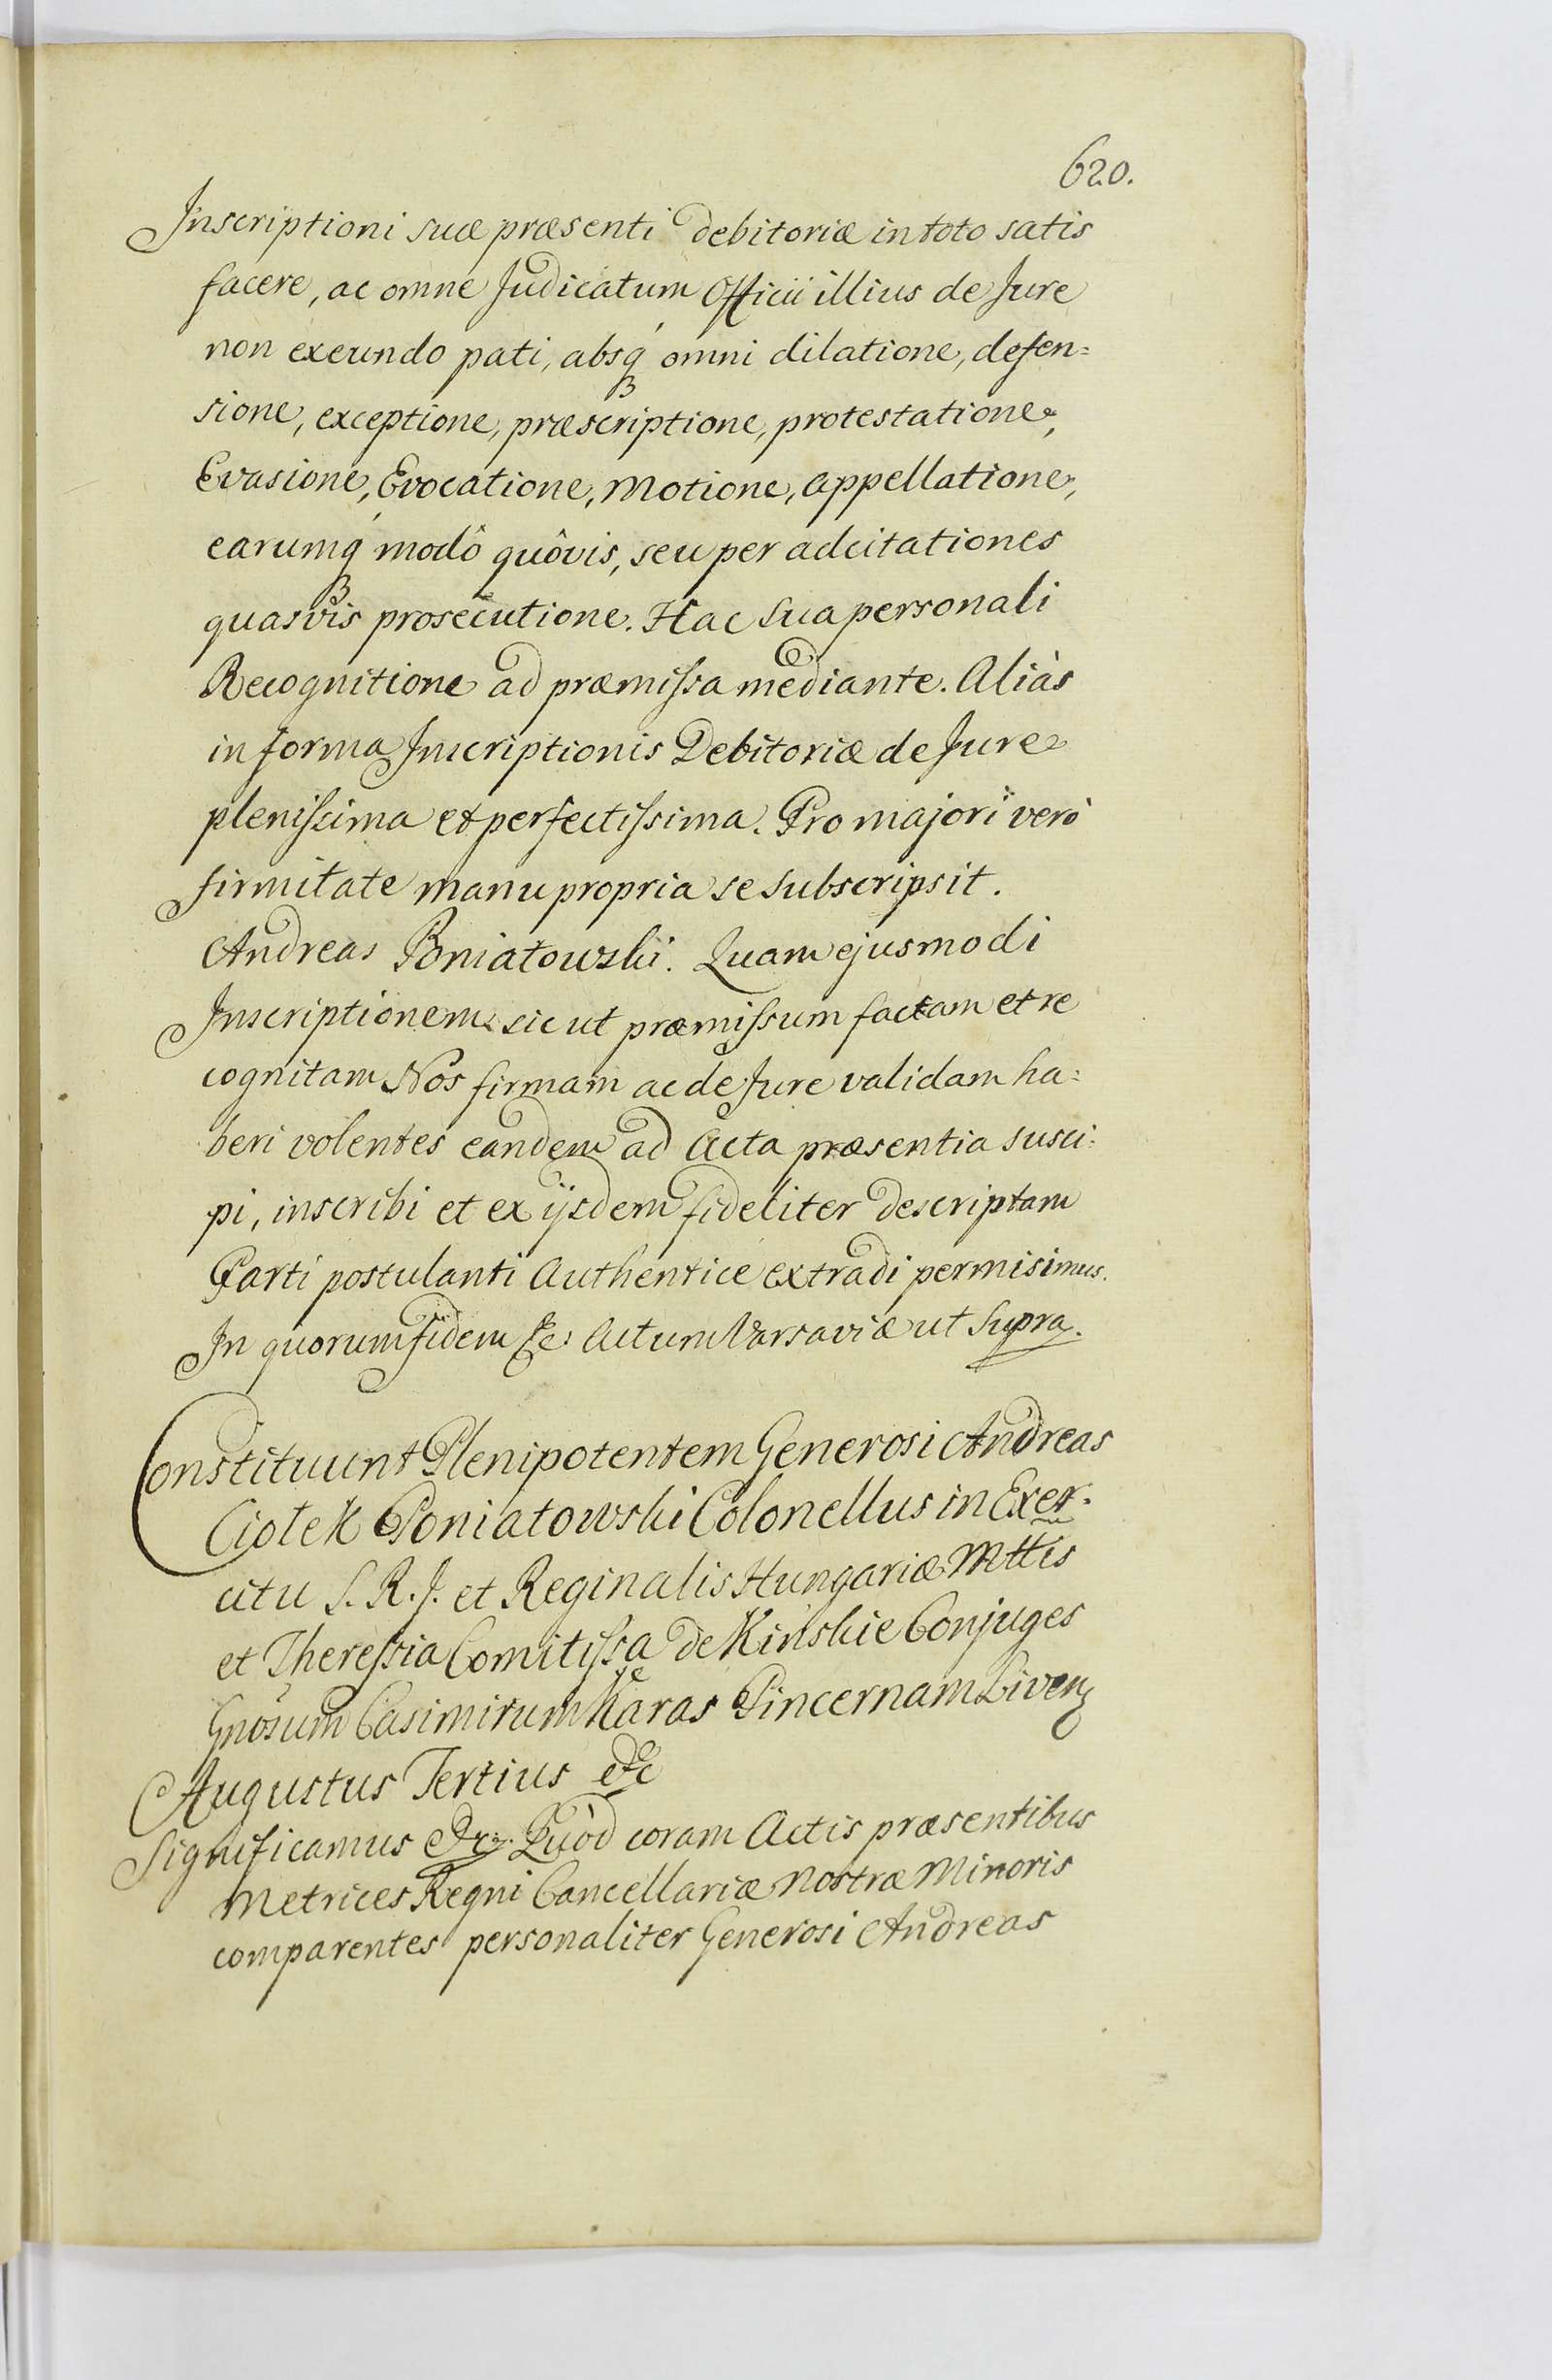 620.
Inscriptioni suæ præsenti debitoriæ in toto satis
facere, ac omne Judicatum Officii illius de Jure
non exeundo pati, absq́ꝫ omni dilatione, defen=
sione, exceptione, præscriptione, protestatione,
Evasione, Evocatione, Motione, appellatione,
earumq́ꝫ modô quôvis, seu per adcitationes
quasvis prosecutione. Hac sua personali
Recognitione ad præmissa mediante. Aliàs
in forma Inscriptionis Debitoriæ de Jure
plenissima et perfectissima. Pro majori verò
firmitate manu propria se subscripsit.
Andreas Poniatowski. Quam ejusmodi
Inscriptionem sic ut præmissum factam et re
cognitam Nos firmam ac de Jure validam ha=
beri volentes eandem ad Acta præsentia susci=
pi, inscribi et ex ijsdem fideliter descriptam
Parti postulanti Authentice extradi permisimus.
In quorum fidem &c: Actum Varsaviæ ut Supra.
Constituunt Plenipotentem Generosi Andreas
Ciołek Poniatowski Colonellus in Exer=
citu S. R. J. et Reginalis Hungariæ Mttis
et Theressia Comitissa de Kinskie Conjuges
Gnosum Casimirum Karas Pincernam Livenꝫ
Augustus Tertius &c
Significamus &c. Quòd coram Actis præsentibus
Metrices Regni Cancellariæ Nostræ Minoris
comparentes personaliter Generosi Andreas